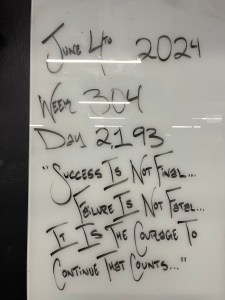 June 4th 2024
Week 304
Day 2,193
"Success Is Not Final...
Failure Is Not Fatal...
It Is The Courage To
Continue That Counts..."